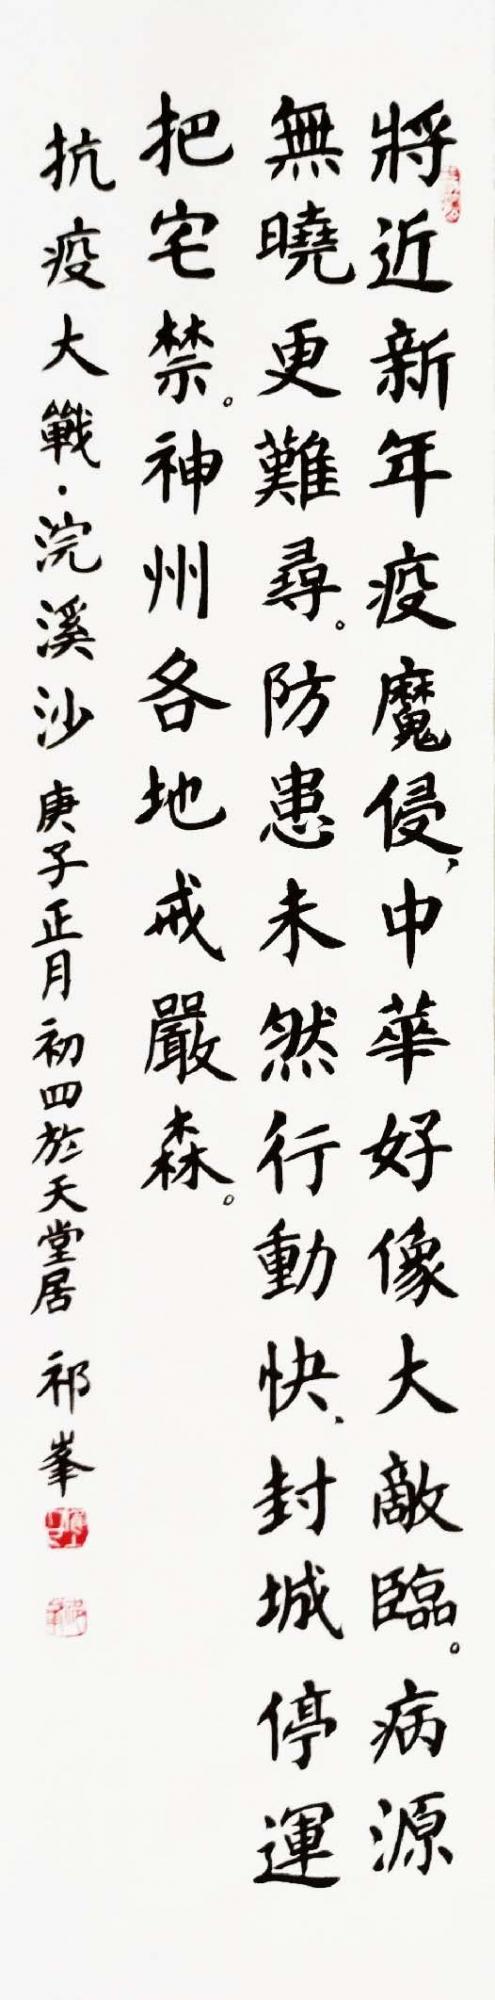 將近新年疫魔侵、中華好像大敵臨。病源
無曉更難尋。防患未然行動快、封城停運
把宅禁。神州各地戒嚴森。
抗疫大戰·浣溪沙 庚子正月初四於天堂居 祁峯